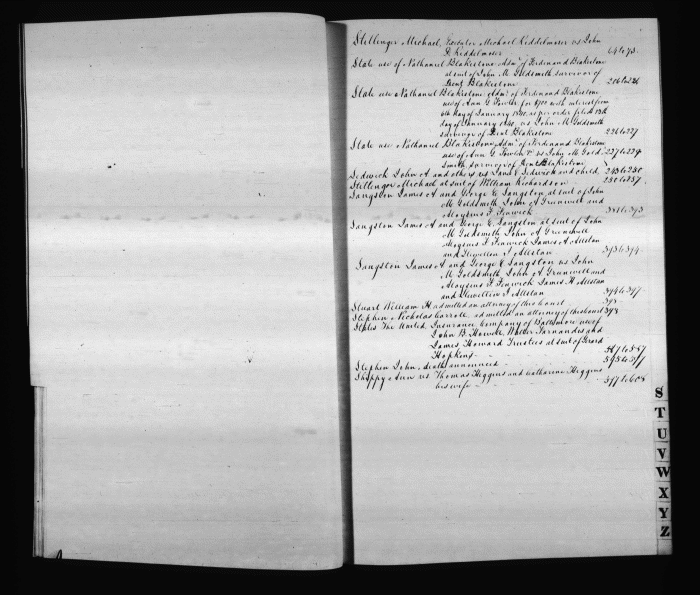 Stillinger Michael, Executor Michael Riddelmoser vs John
D. Riddelmoser 64 to 73.
State use of Nathaniel Blakistone Admr of Ferdinand Blakistone
at suit of John M. Goldsmith survivor of
Bent Blakistone 206 to 226
State use Nathaniel Blakistone Admr of Ferdinand Blakistone
use of Ann G Fowler for with interest from
6th day of January as per order filed 13th
day of January 1840. vs John M Goldsmith
survivor of Bent Blakistone 226 to 227
State use Nathaniel Blakistone Admr of Ferdinand Blakistone
use of Ann G. Fowler vs John M. Gold- 227 to 229
smith survivor of Bent Blakistone
Sedwick John A and others vs Land Sedwick and child. 243 to 250
Stillinger Michael at suit of William Richardson 250 to 257.
Langston James A and George E Langston at suit of John
M Goldsmith John A Grunwell and
Aloysius F. Fenwick 391 to 393
Langston James A and George E Langston at suit of John
M Goldsmith John A Grunwell
Aloysius F Fenwick James A Allstan
and Llewellen J Allstan 393 to 394.
Langston James A and George E Langston vs John
M Goldsmith John A Grunwell and
Aloysius F. Fenwick James H Allstan
and Llewellien J Allstan 394 to 397
Stuart William H. admitted an attorney of this Court 398
Stephen Nicholas Carroll, admitted an attorney of this court 398
States The United Insurance Company of Baltimore use of
John B. Howell, Walter Farnandes and
James Howard Trustees at suit of Gerard
Hopkins 567 to 587
Stephen John, death announced 595 to 597
Shoppy Ann vs Thomas Higgins and Catharine Higgins
his wife 597 to 608
S
T
U
V
W
X
Y
Z